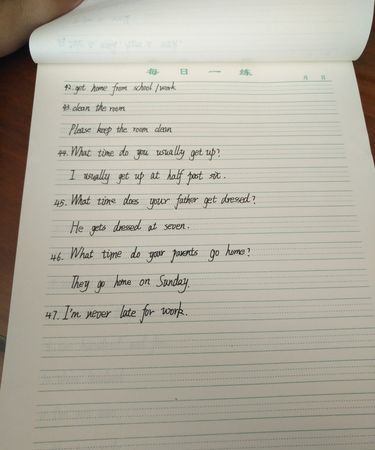 每日一练
月 日
42. get home from school/work
43. clean the room
Please keep the room clean
44. What time do you usually get up?
I usually get up at half past six.
45. What time does your father get dressed?
He gets dressed at seven.
46. What time do your parents go home?
They go home on Sunday.
47. I'm never late for work.